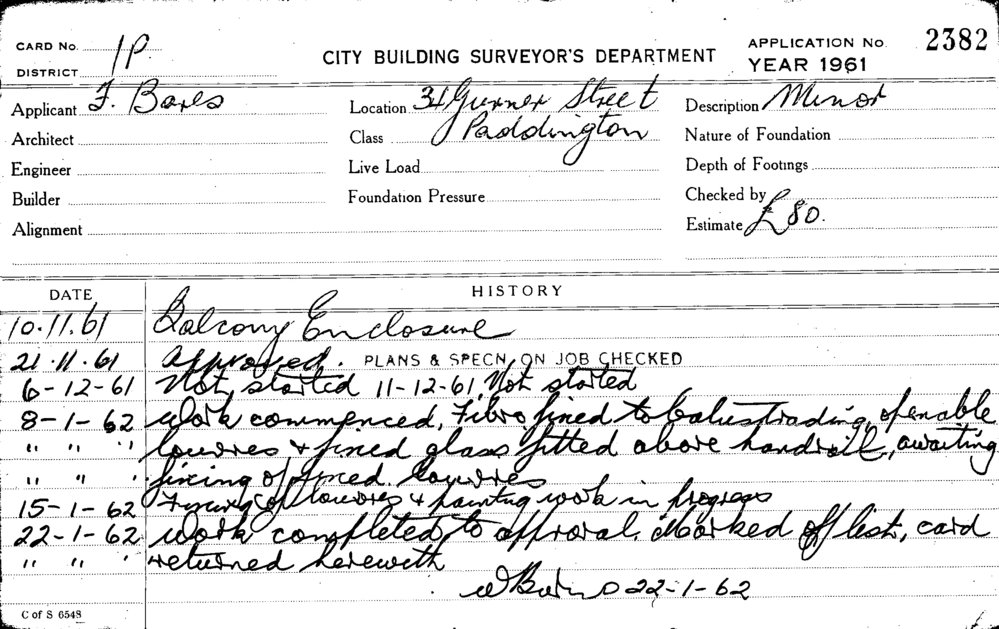 CARD No. 1P.
DISTRICT
CITY BUILDING SURVEYOR'S DEPARTMENT
APPLICATION No. 2382
YEAR 1961
Applicant F. Bares
Location 34 Gurner Street
Description Minor
Architect
Class Paddington
Nature of Foundation
Engineer
Live Load
Depth of Footings
Builder
Foundation Pressure
Checked by
Alignment
Estimate £80.
DATE HISTORY
10.11.61 Balcony Enclosure
21.11.61 Approved. PLANS & SPECN. ON JOB CHECKED
6-12-61 Not started 11-12-61, Not started
8-1-62 Work commenced, Fibro fixed to balustrading, openable
" " " louvres & fixed glass fitted above handrail, awaiting
" " " fixing of fixed louvres
15-1-62 Fixing of louvres & painting work in progress
22-1-62 Work completed to approval. Marked off list, card
" " " returned herewith
22-1-62
C of S 6548